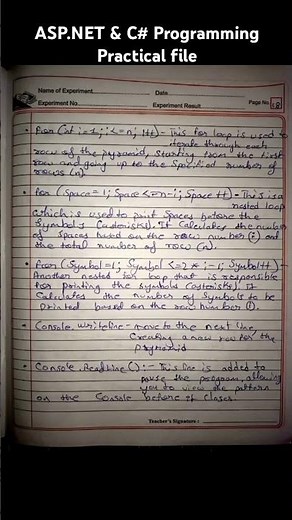 ASP.NET & C# Programming
Practical file
Name of Experiment
Date
Experiment No.
Experiment Result
Page No. 18
• For (int i=1; i<=n; i++) - This for loop is used to
iterate through each
row of the pyramid, starting from the first
row and going up to the specified number of
rows (n)
• for (Space=1; Space<=n-i; Space++) - This is a
nested loop
which is used to print spaces before the
Symbols (asterisks). It Calculates the number
of spaces based on the row number (i) and
the total number of row (n).
• For (Symbol=1; Symbol <=2*i-1; Symbol++) -
Another nested for loop that is responsible
for printing the symbols (asterisks). It
Calculates the number of symbols to be
printed based on the row number (i).
• Console.WriteLine - move to the next line,
Creating a new row for the
pyramid
• Console.ReadLine(); - This line is added to
pause the program, allowing
you to view the pattern
on the Console before it closes.
Teacher's Signature :